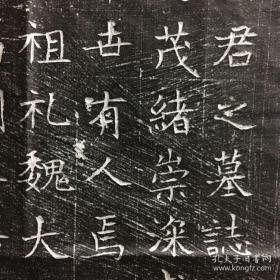 君之墓誌
茂緒崇深
世有人焉
祖礼魏大